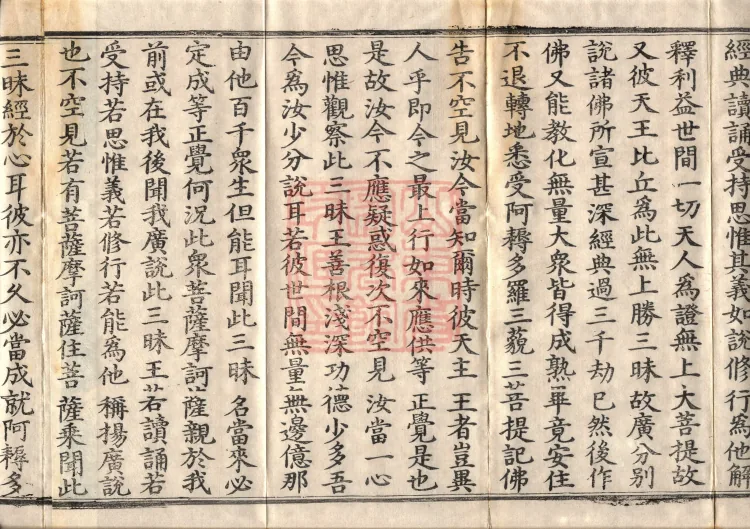 經典讀誦受持思惟其義如說修行為他解
釋利益世間一切天人為證無上大菩提故
又彼天王比丘為此無上勝三昧故廣分別
說諸佛所宣甚深經典過三千劫已然後作
佛又能教化無量大眾皆得成熟畢竟安住
不退轉地悉受阿耨多羅三藐三菩提記佛
告不空見汝今當知爾時彼天主王者豈異
人乎即今之最上行如來應供等正覺是也
是故汝今不應疑惑復次不空見汝當一心
思惟觀察此三昧王善根淺深功德少多吾
今為汝少分說耳若彼世間無量無邊億那
由他百千眾生但能耳聞此三昧名當來必
定成等正覺何況此眾菩薩摩訶薩親於我
前或在我後聞我廣說此三昧王若讀誦若
受持若思惟義若修行若能為他稱揚廣說
也不空見若有菩薩摩訶薩住菩薩乘聞此
三昧經於心耳彼亦不久必當成就阿耨多